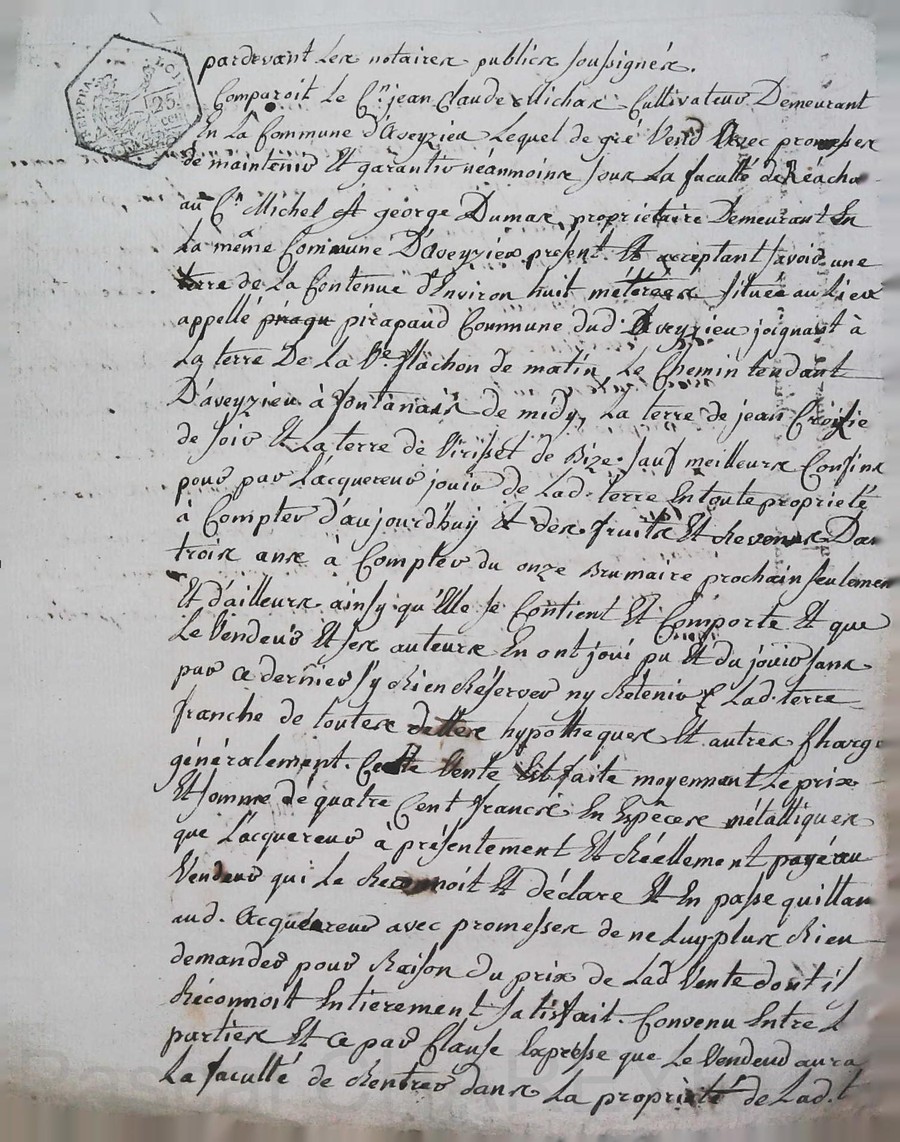 pardevant les notaires publics soussignés.
Comparoit le Cn. jean Claude Michas Cultivateur Demeurant
En La Commune d'aveyzieu Lequel de gré Vend avec promesses
de maintenir Et garantir néanmoins sous La faculté de Réacha
au Cn. Michel et george Dumas propriétaire Demeurant En
La même Commune D'aveyzieu présent. Et acceptant savoir une
terre de La Contenue d'Environ huit méterées située au Lieu
appellé pirapaud Commune dud. aveyzieu joignant à
La terre De La Ve. flachon de matin, Le Chemin tendant
D'aveyzieu à fontanais de midy, La terre de jean Croizie
de soir Et La terre de Virisset de Bize. sauf meilleurs Confins
pour par L'acquereur jouir de Lad. terre En toute propriété
à Compter d'aujourd'huy et des fruits Et Revenus Dan
trois ans à Compter du onze Brumaire prochain seulemen
Et d'ailleurs ainsy qu'Elle se Contient Et Comporte Et que
Le Vendeur Et ses auteurs En ont joui pu Et du jouir sans
par ce dernier s'y Rien Réserver ny Retenir Lad. terre
franche de toutes dettes hypotheques Et autres Charge
généralement. Cette Vente Est faite moyennant Le prix
Et somme de quatre Cent francs En Espèces métalliques
que L'acquereur à présentement Et Réellement payé au
Vendeur qui Le Reconnoit Et déclare Et En passe quittan
aud. acquereur avec promesses de ne Luy plus Rien
demander pour Raison du prix de Lad Vente dont il
Réconnoit Entierement satisfait. Convenu Entre L
parties Et ce par Clause Expresse que Le Vendeur aura
La faculté de Rentrer dans La propriété de Lad. t